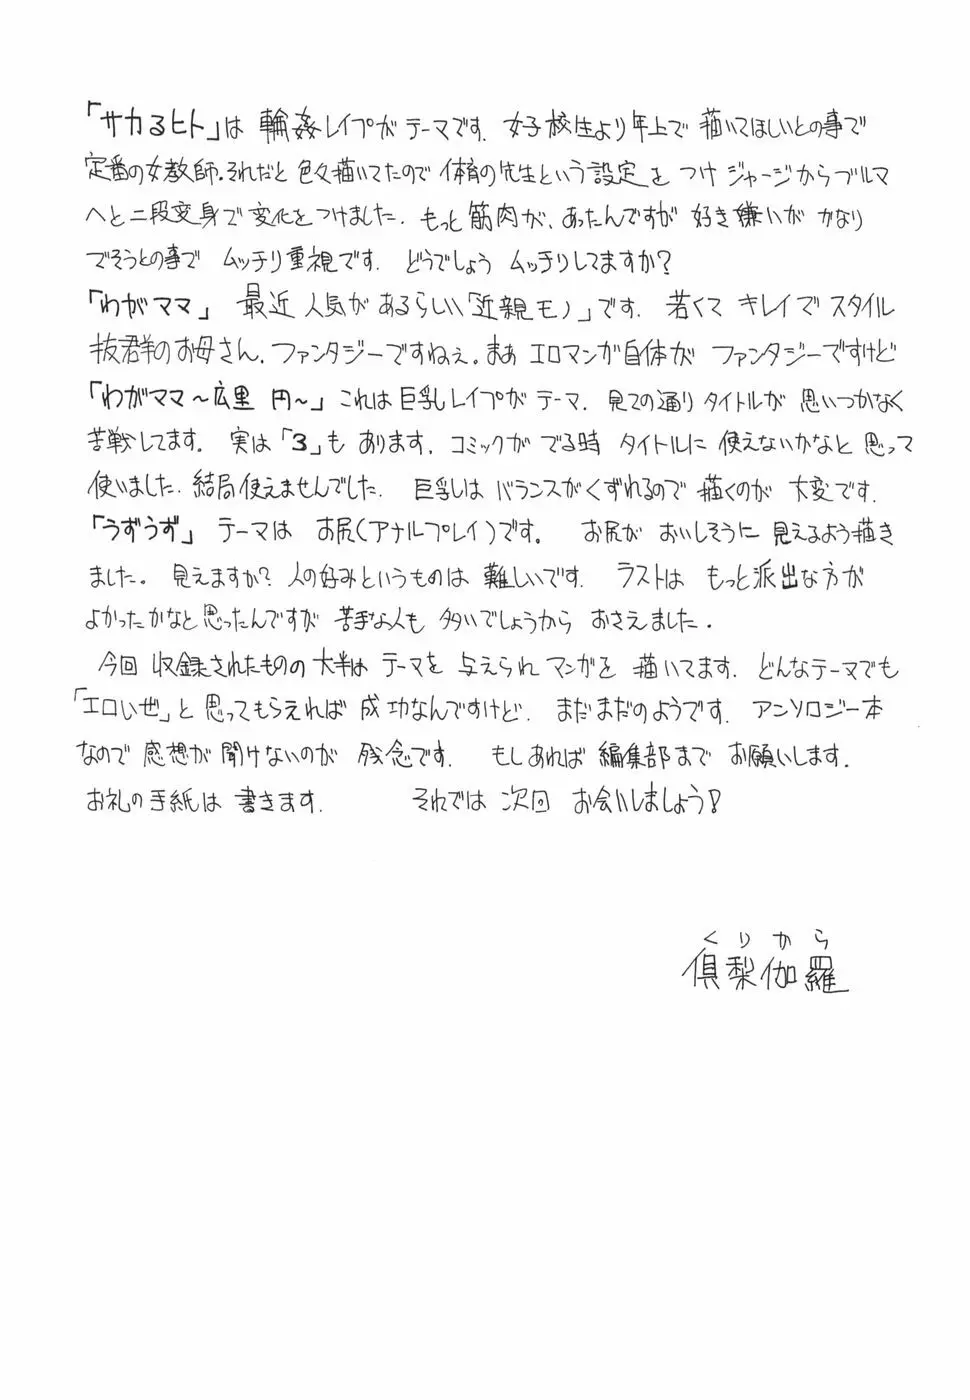 「サカるヒト」は 輪姦レイプがテーマです. 女子校生より年上で 描いてほしいとの事で
定番の女教師。それだと 色々描いてたので 体育の先生という設定を つけ ジャージからブルマ
へと二段変身で 変化をつけました. もっと 筋肉が、あったんですが 好き嫌いが かなり
でそうとの事で ムッチリ重視です. どうでしょう ムッチリしてますか?
「わがママ」 最近 人気が あるらしい「近親モノ」です. 若くて キレイで スタイル
抜群のお母さん. ファンタジーですねぇ。まぁ エロマンガ自体が ファンタジーですけど
「わがママ～広里 円～」これは巨乳レイプが テーマ. 見ての通り タイトルが 思いつかなく
苦戦してます。 実は「3」も あります. コミックが でる時 タイトルに 使えないかなと 思って
使いました. 結局使えませんでした. 巨乳は バランスがくずれるので 描くのが 大変です.
「うずうず」 テーマは お尻(アナルプレイ)です。 お尻が おいしそうに 見えるよう描き
ました。 見えますか? 人の好みというものは 難しいです. ラストは もっと派出な方が
よかったかなと思ったんですが 苦手な人も 多いでしょうから おさえました.
今回 収録されたものの 大半は テーマを 与えられ マンガを 描いてます. どんなテーマでも
「エロいぜ」と 思ってもらえれば 成功なんですけど. まだまだのようです. アンソロジー本
なので 感想が 聞けないのが 残念です. もしあれば 編集部まで お願いします.
お礼の手紙は 書きます. それでは 次回 お会いしましょう!
くりから
倶梨伽羅